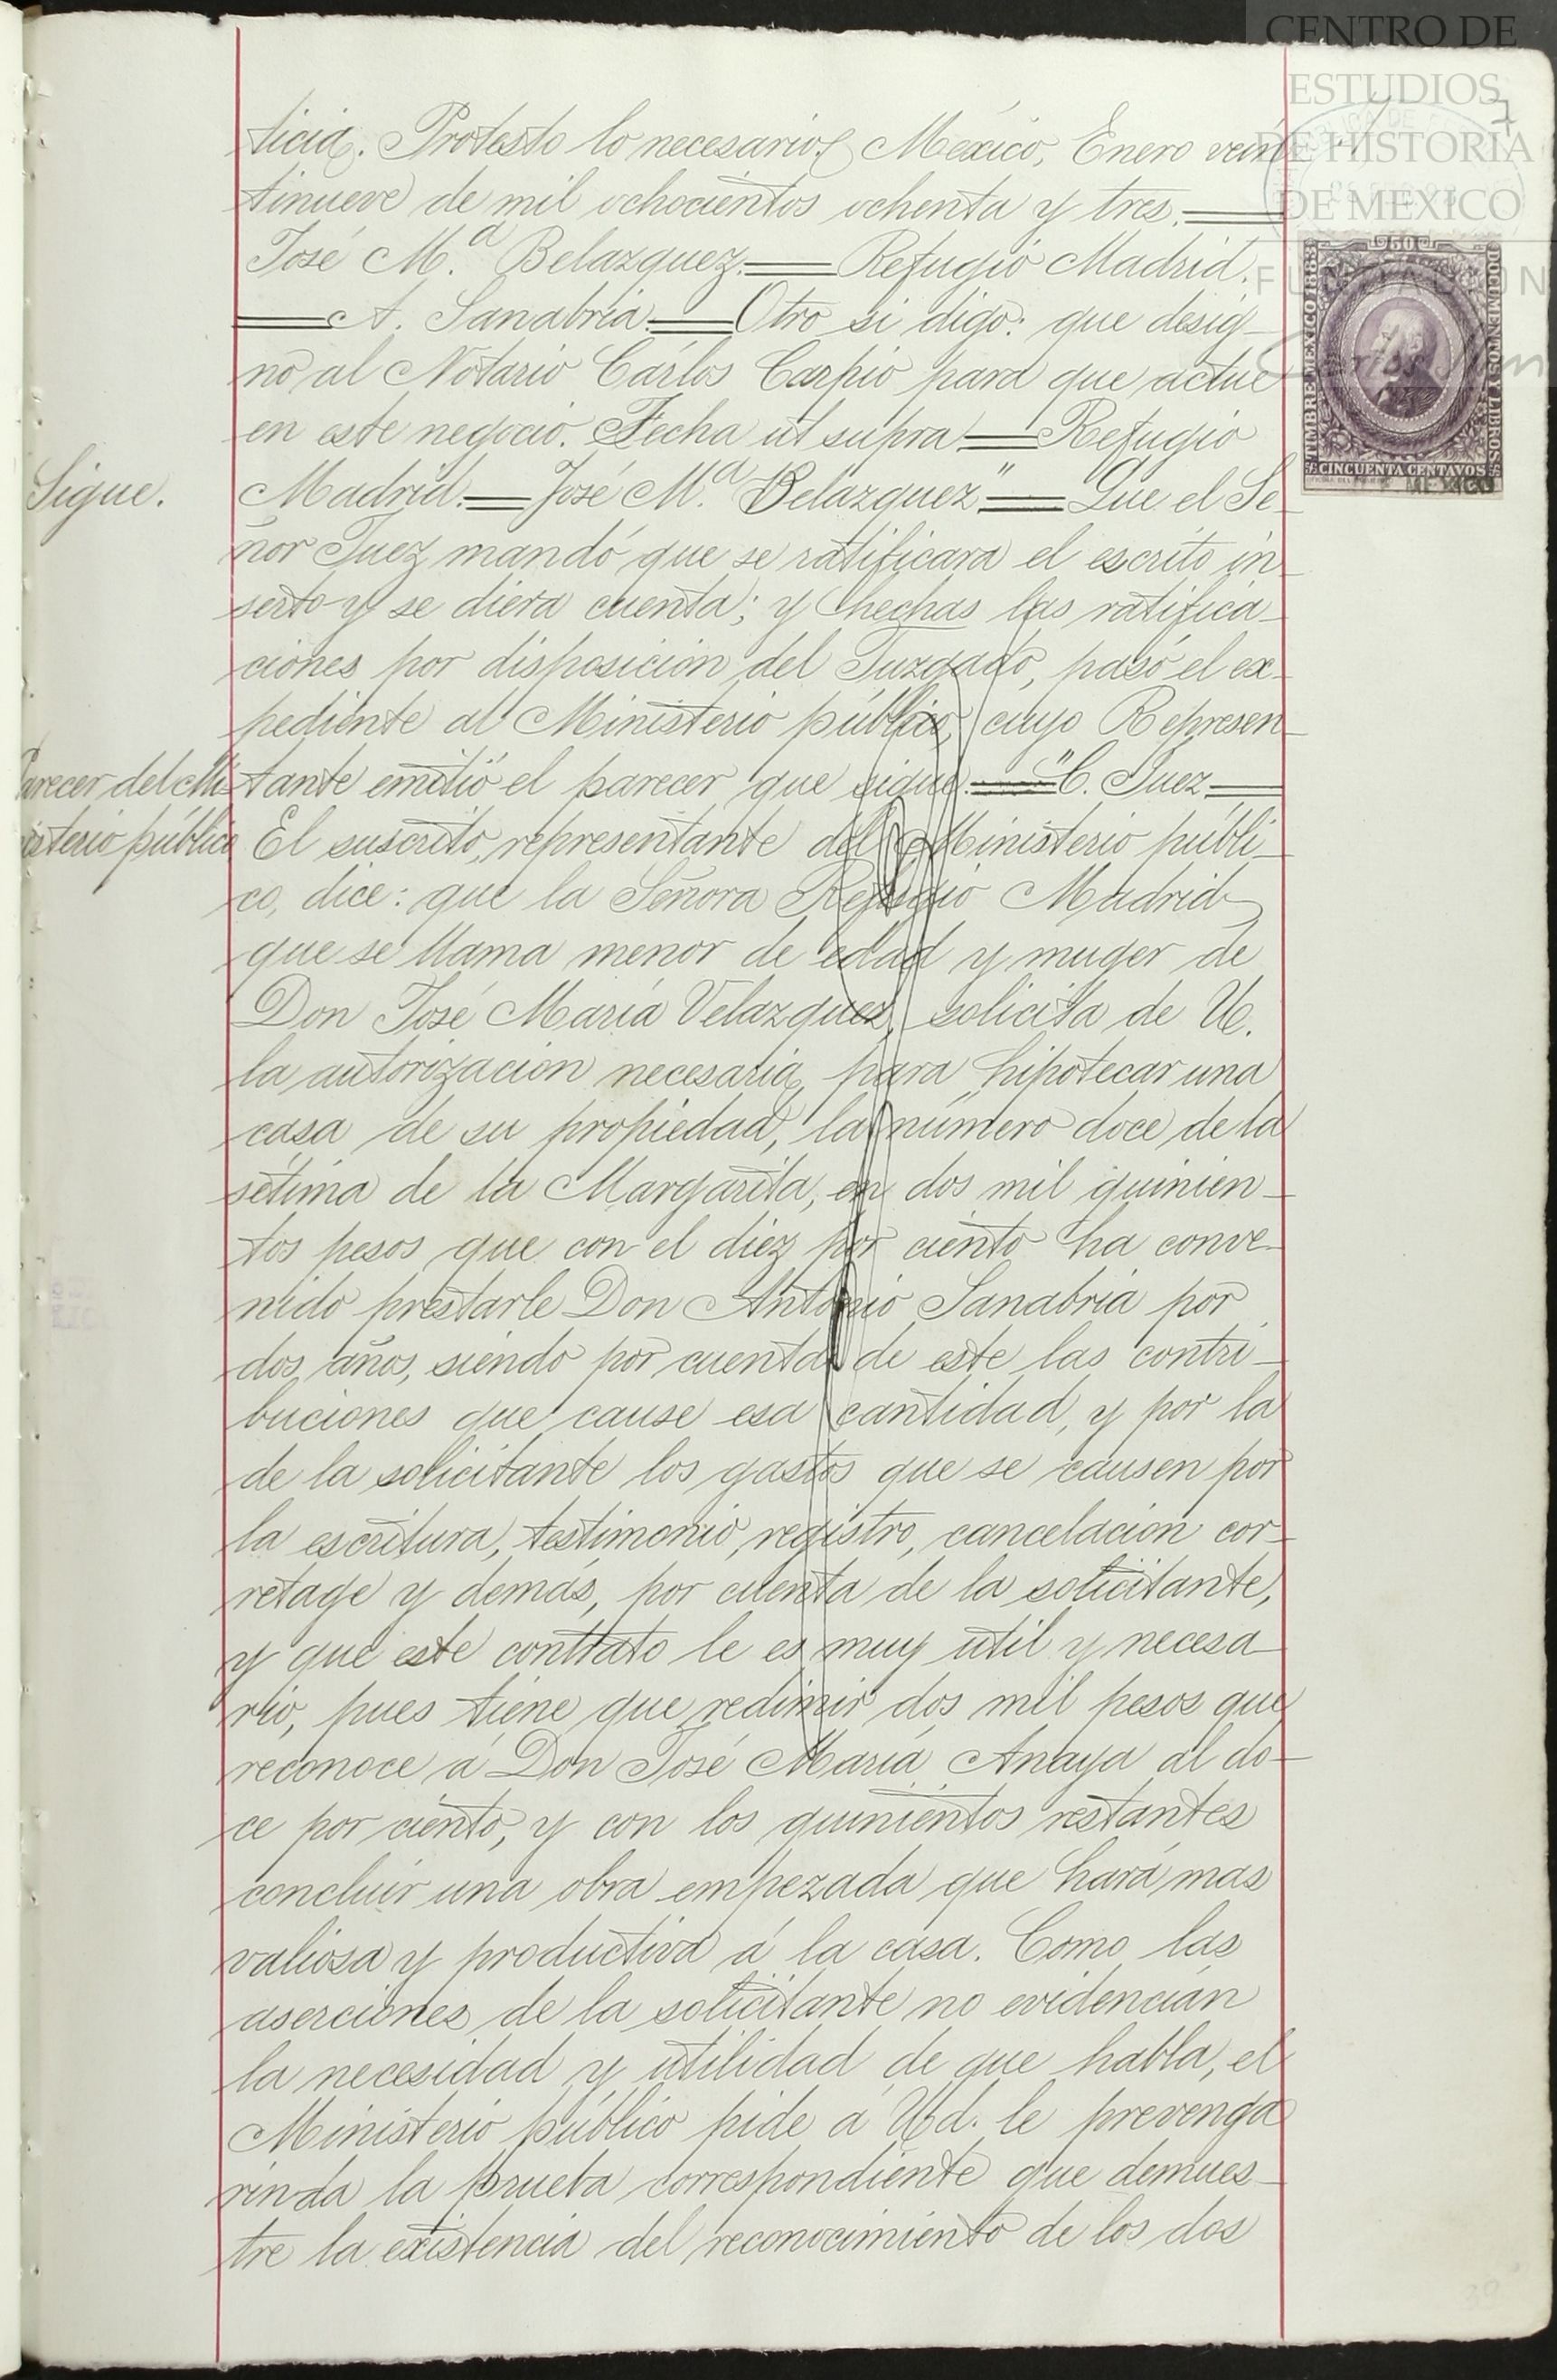 CENTRO DE
ESTUDIOS
DE HISTORIA
DE MEXICO
FUNDACIÓN
7
ticia. Protesto lo necesario. México, Enero vein
tinueve de mil ochocientos ochenta y tres.=
José M.ª Belazquez.= Refugio Madrid.
= A. Sanabria.= Otro si digo: que desig-
no al Notario Cárlos Carpio para que actue
en este negocio. Fecha ut supra.= Refugio
Sigue.
Madrid.= José M.ª Belazquez"= Que el Se-
ñor Juez mandó que se ratificara el escrito in-
serto y se diera cuenta; y hechas las ratifica-
ciones por disposicion del Juzgado, pasó el ex-
pediente al Ministerio público, cuyo Represen-
Parecer del Mi-
tante emitió el parecer que sigue.= "C. Juez=
nisterio público
El suscrito, representante del Ministerio públi-
co, dice: que la Señora Refugio Madrid
que se llama menor de edad y muger de
Don José María Velazquez, solicita de U.
la autorizacion necesaria, para hipotecar una
casa de su propiedad, la número doce de la
sétima de la Margarita, en dos mil quinien-
tos pesos que con el diez por ciento ha conve-
nido prestarle Don Antonio Sanabria por
dos años, siendo por cuenta de este las contri-
buciones que cause esa cantidad, y por la
de la solicitante los gastos que se causen por
la escritura, testimonio, registro, cancelacion cor-
retage y demás, por cuenta de la solicitante,
y que este contrato le es muy util y necesa-
rio, pues tiene que redimir dos mil pesos que
reconoce á Don José María Anaya al do-
ce por ciento, y con los quinientos restantes
concluir una obra empezada que hará mas
valiosa y productiva á la casa. Como las
aserciones de la solicitante no evidencian
la necesidad y utilidad de que habla, el
Ministerio público pide á Ud. le prevenga
rinda la prueba correspondiente que demues-
tre la existencia del reconocimiento de los dos
50
TIMBRE MEXICO 1883
DOCUMENTOS Y LIBROS
CINCUENTA CENTAVOS
MEXICO